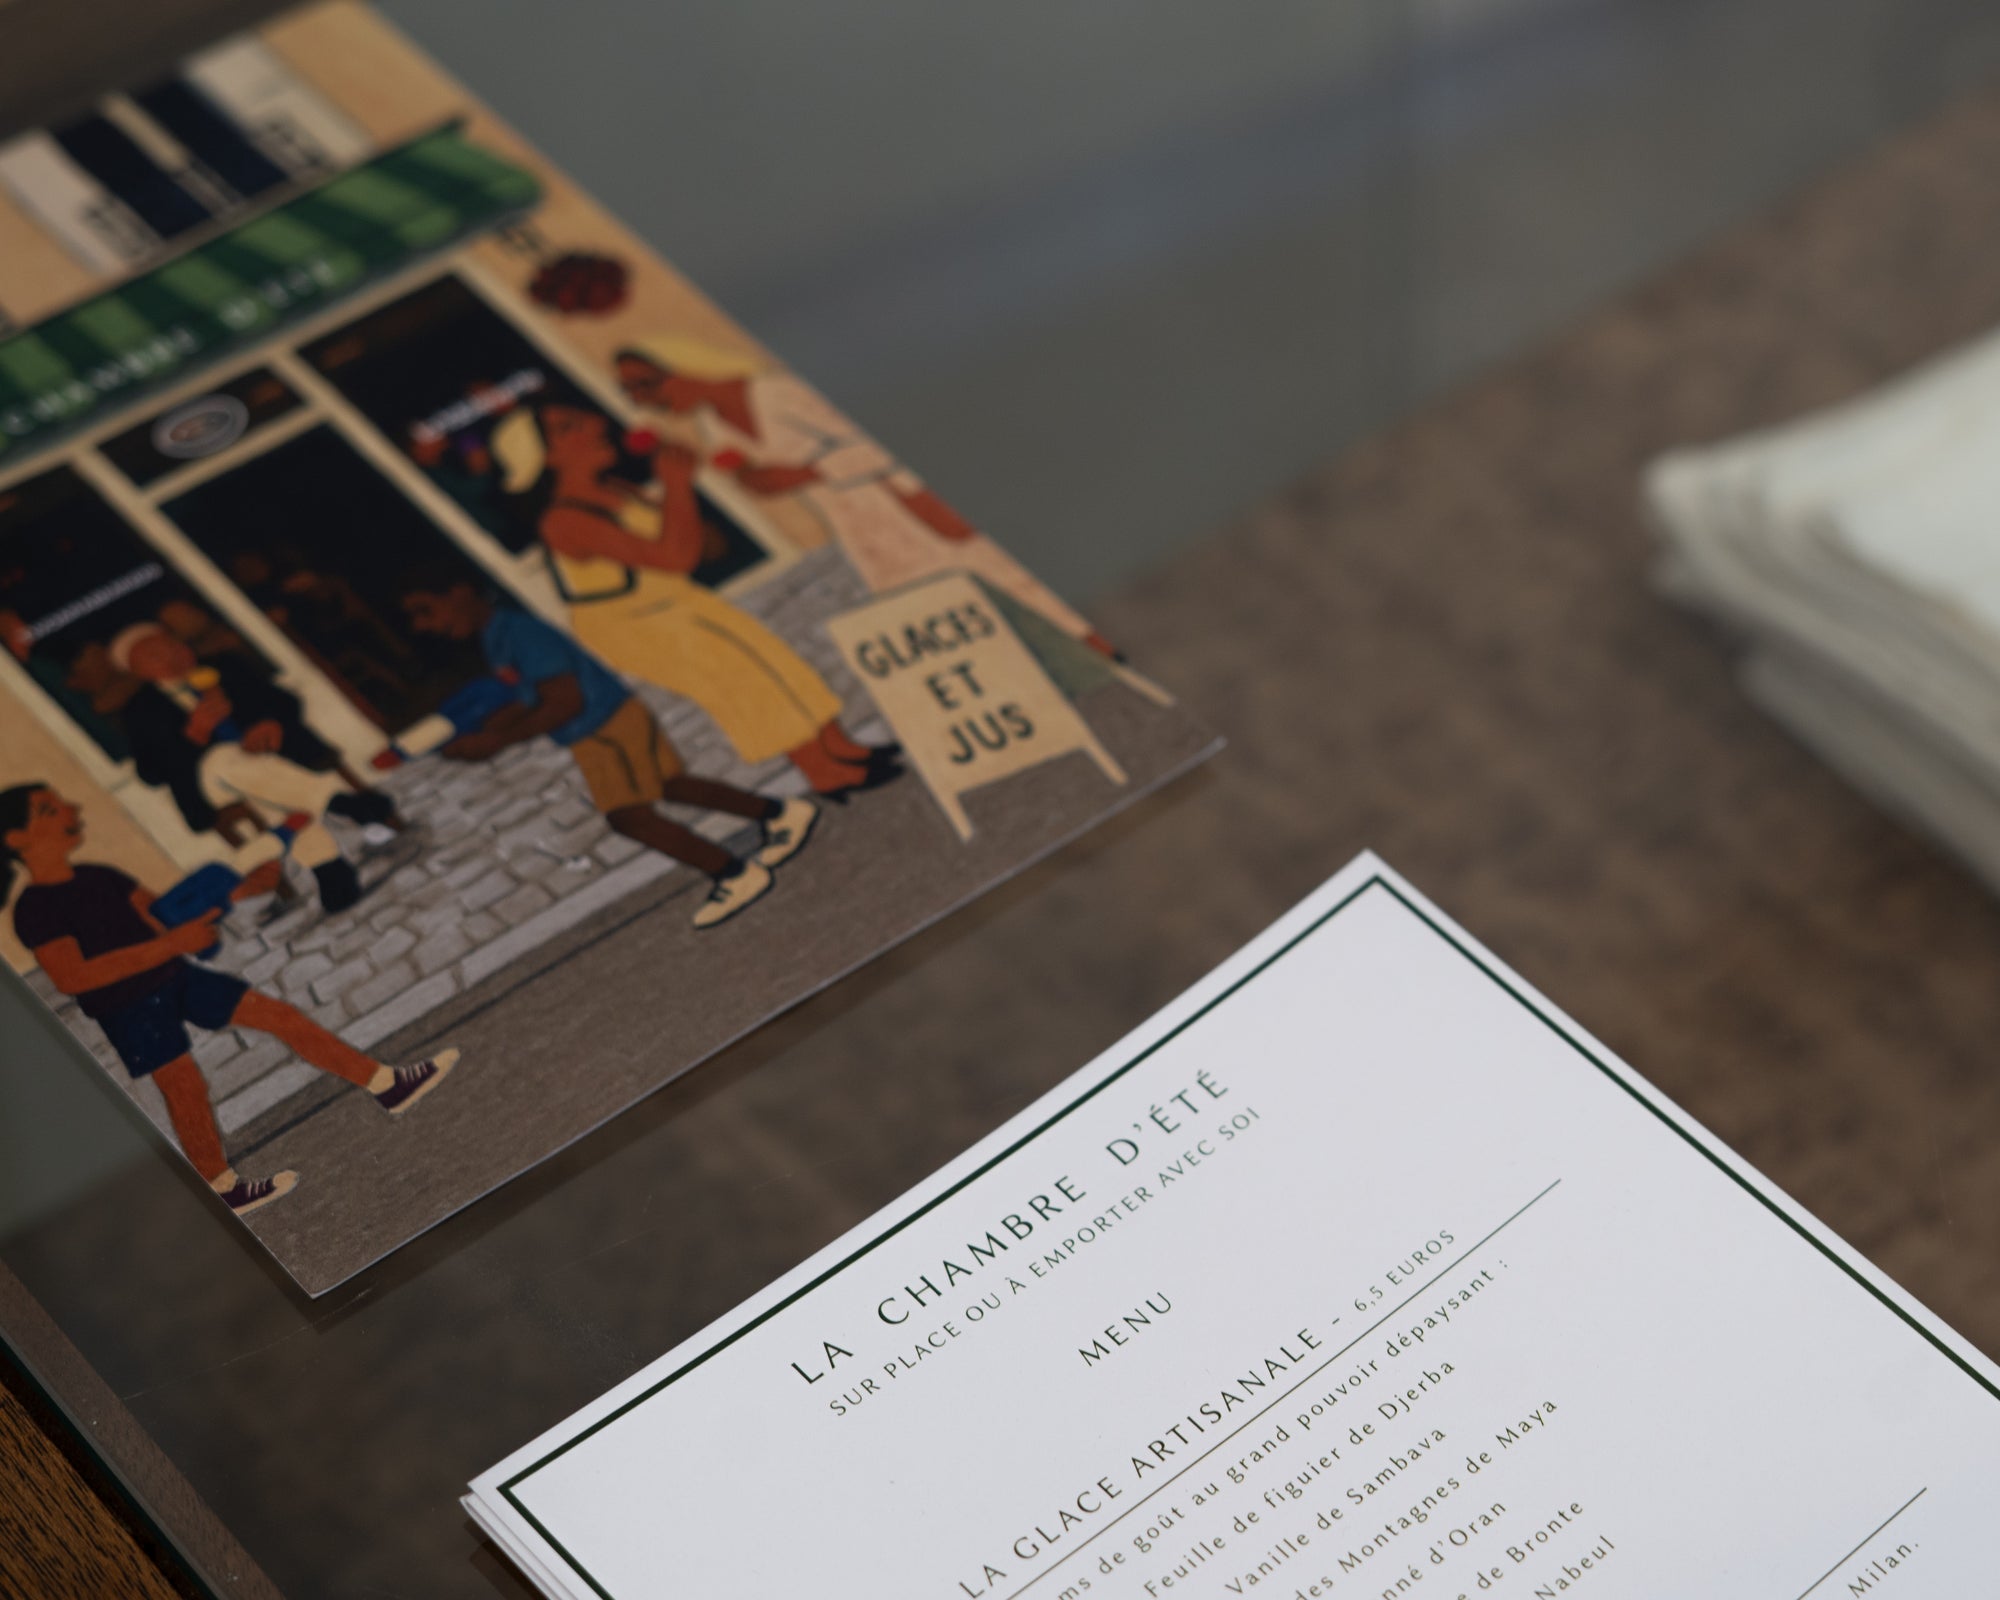 GLACES
ET
JUS
LA CHAMBRE D'ÉTÉ
SUR PLACE OU À EMPORTER AVEC SOI
MENU
LA GLACE ARTISANALE - 6,5 EUROS
de goût au grand pouvoir dépaysant :
Feuille de figuier de Djerba
Vanille de Sambava
des Montagnes de Maya
d'Oran
de Bronte
Nabeul
Milan.